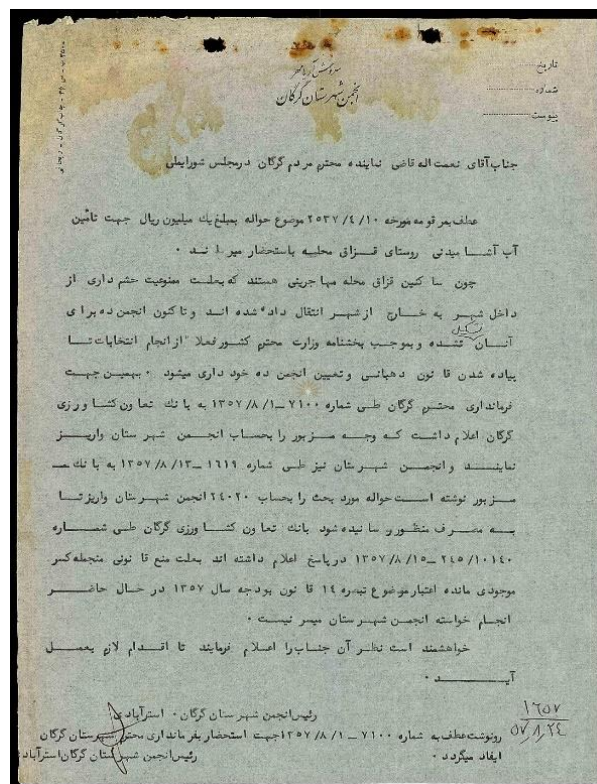 تاریخ
شماره
پیوست
انجمن شهرستان گرگان
جناب آقای نعمت اله قاضی نماینده محترم مردم گرگان در مجلس شورایملی
عطف بمرقومه مورخه ۲۵۳۷/۴/۱۰ موضوع حواله بمبلغ یک میلیون ریال جهت تأمین
آب آشامیدنی روستای قزاق محلیه باستحضار میرساند ۰
چون ساکنین قزاق محله مهاجرینی هستند که بعلت ممنوعیت حشم داری از
داخل شهر به خارج از شهر انتقال داده شده اند و تاکنون انجمن ده برای
آنان تشکیل نشده و بموجب بخشنامه وزارت محترم کشور فعلا از انجام انتخابات تا
پیاده شدن قانون دهبانی و تعیین انجمن ده خود داری میشود ۰ بهمین جهت
فرمانداری محترم گرگان طی شماره ۷۱۰۰ــ۱۳۵۷/۸/۱ به بانک تعاون کشاورزی
گرگان اعلام داشت که وجه مزبور را بحساب انجمن شهرستان واریز
نمایند و انجمن شهرستان نیز طی شماره ۱۶۱۹ــ۱۳۵۷/۸/۱۳ به بانک
مزبور نوشته است حواله مورد بحث را بحساب ۲۴۰۲۰ انجمن شهرستان واریز تا
به مصرف منظور رسانیده شود بانک تعاون کشاورزی گرگان طی شماره
۲۴۵/۱۰۱۴۰ــ۱۳۵۷/۸/۱۵ در پاسخ اعلام داشته اند بعلت منع قانونی منجمله کسر
موجودی مانده اعتبار موضوع تبصره ۱۴ قانون بودجه سال ۱۳۵۷ در حال حاضر
انجام خواسته انجمن شهرستان میسر نیست ۰
خواهشمند است نظر آن جناب را اعلام فرمایند تا اقدام لازم بعمل
آید ۰
رئیس انجمن شهرستان گرگان ۰ استرآبادی
رونوشت عطف به شماره ۷۱۰۰ــ۱۳۵۷/۸/۱ جهت استحضار بفرمانداری محترم شهرستان گرگان
ایفاد میگردد ۰
رئیس انجمن شهرستان گرگان استرآباد
۱۶۵۷
۵۷/۸/۲۴